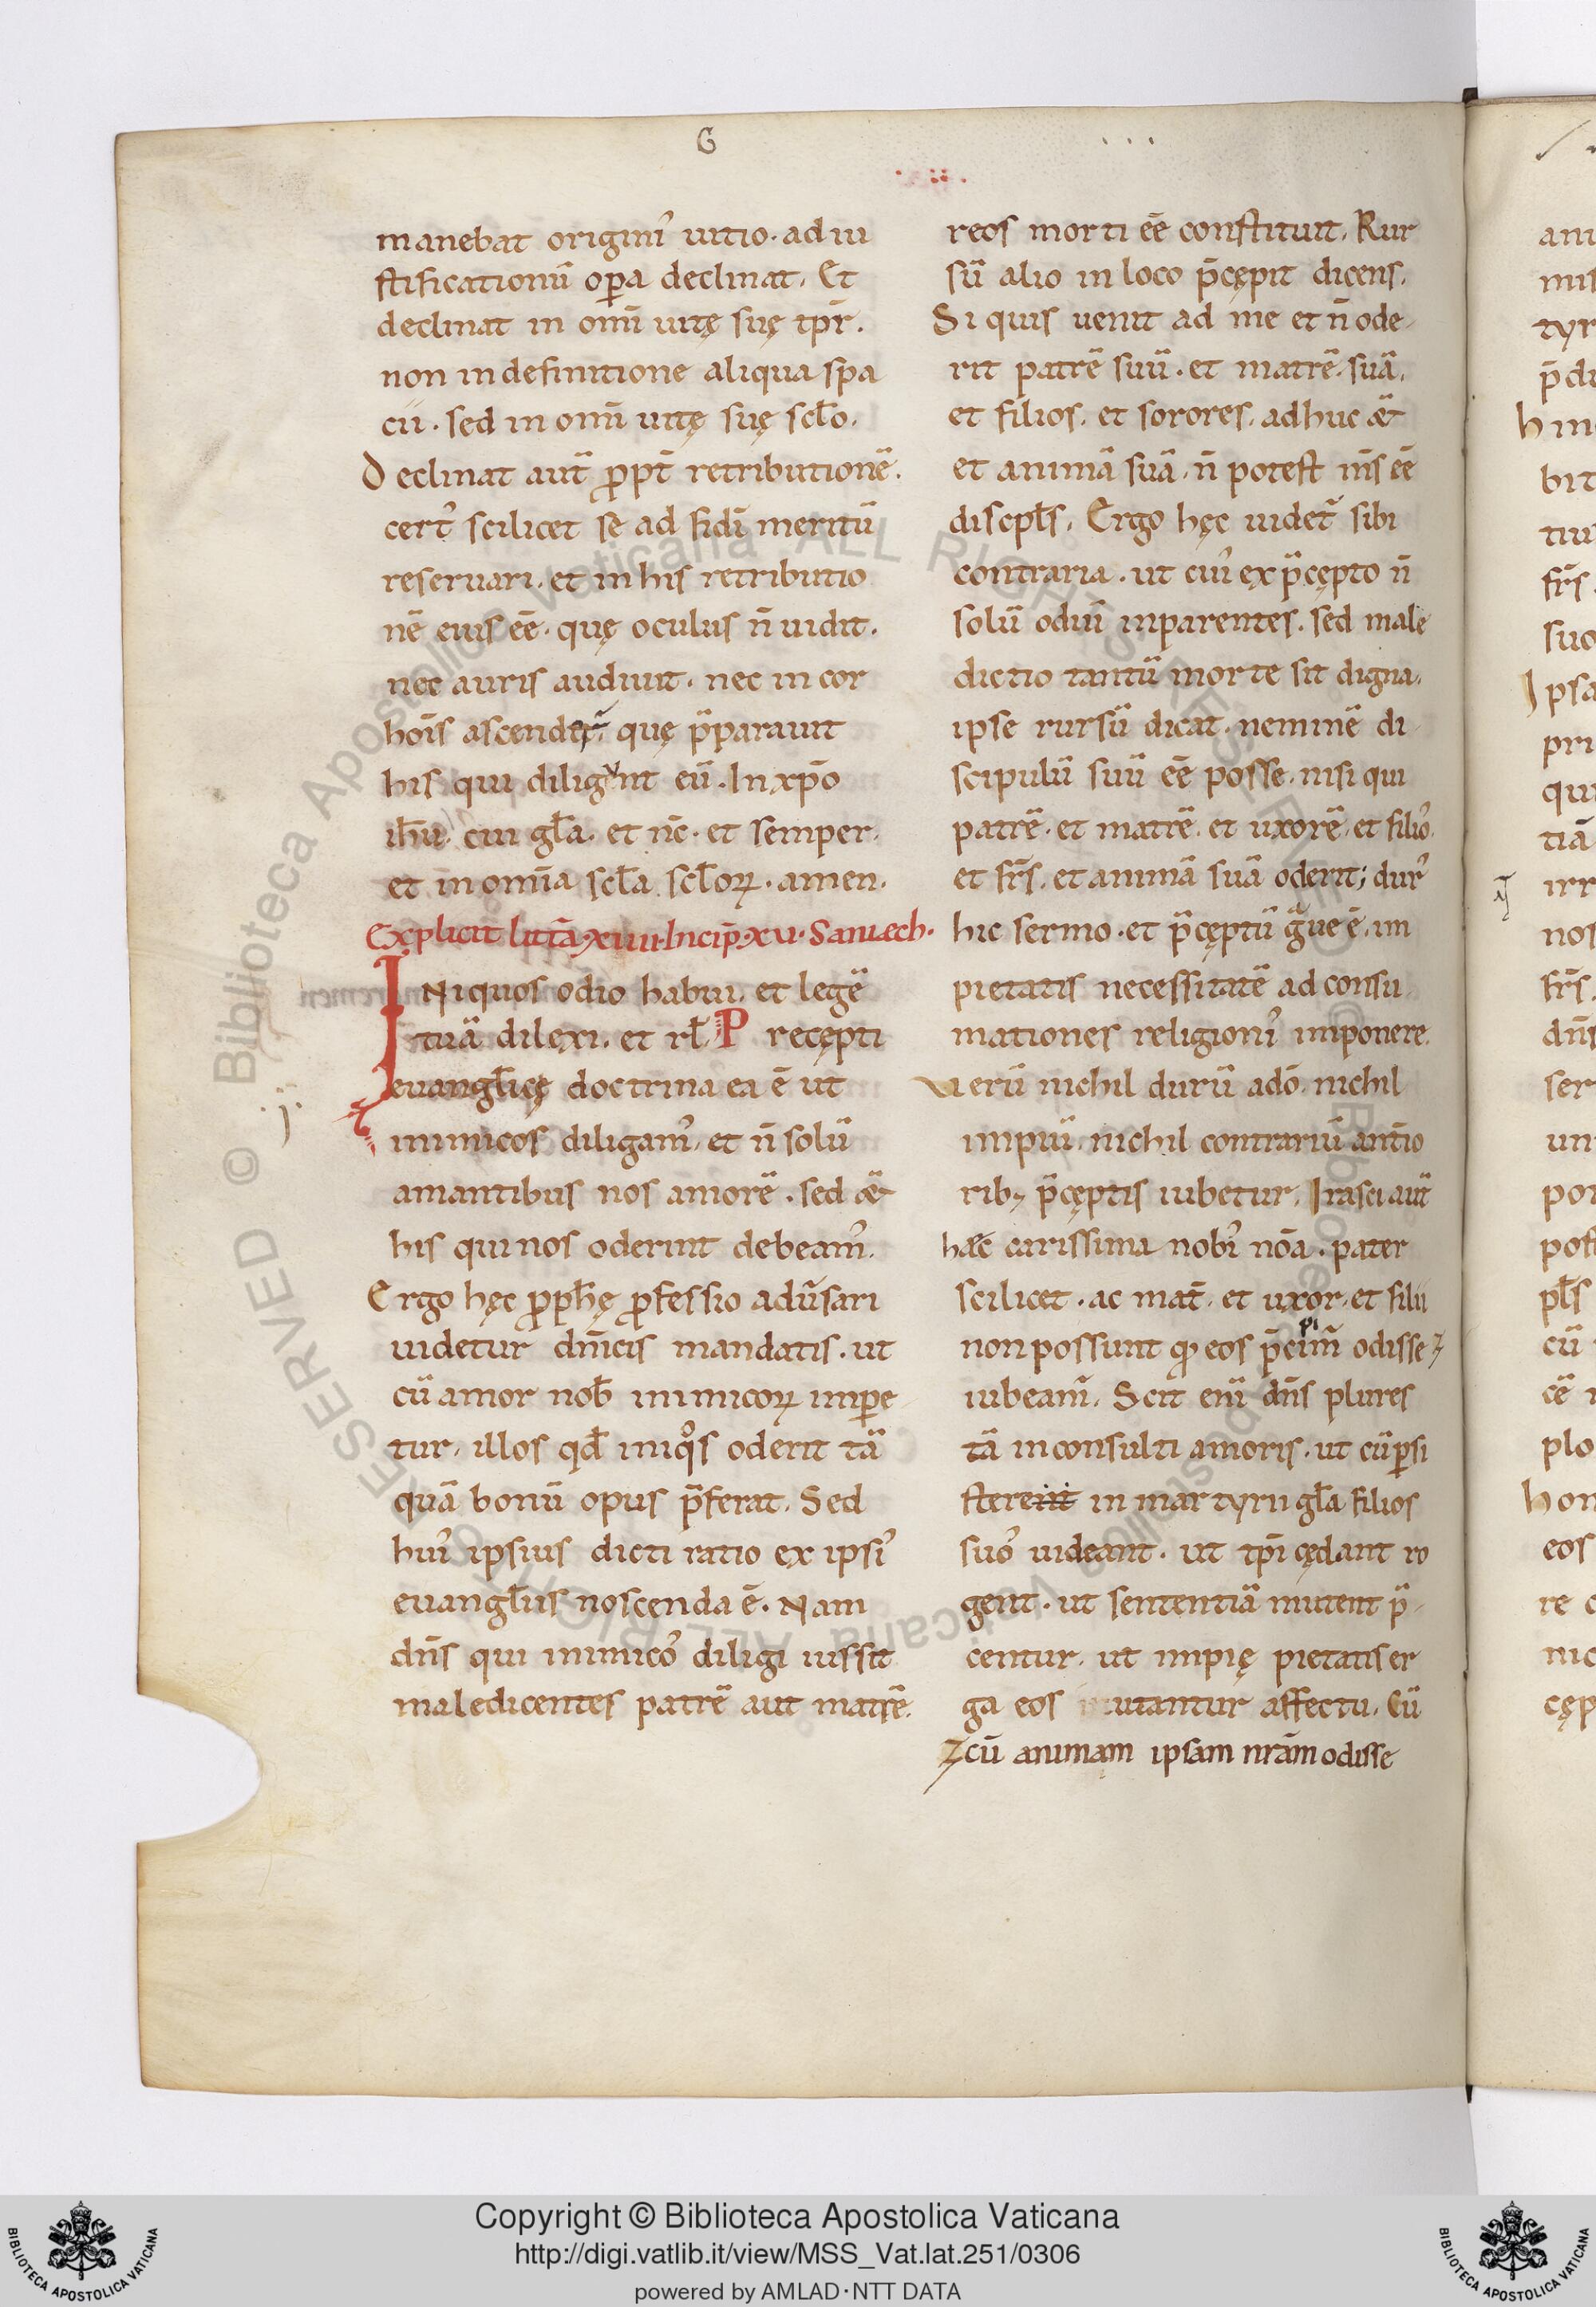 G
manebat origini᾽ uitio. ad iu
stificationū opa declinat. Et
declinat in omī uitę suę tpr̄.
non in definitione aliqua spa
cii. sed in omī uitę suę scl̄o.
Declinat aut̄ ꝓpt̄ retributionē.
cert᾽ scilicet se ad fidī meritū
reseruari. et in his retributio
nē eius eē. quę oculus n̄ uidit.
nec auris audiuit. nec in cor
hoīs ascender̄. quę p̄parauit
his qui diligvnt eū. In xp̄o
ih̄u. cui gl̄a. et nc̄. et semper.
et in om̄ia scl̄a scl̄oꝝ. amen.
Explicit litt̄a. xiiii. Incip̄. xv. Samæch.
INiquos odio habui. et legē
tuā dilexi. et rl̄. P recępti
euangl̄icę doctrina ea ē ut
inimicos diligam᾽. et n̄ solū
amantibus nos amorē. sed ǣ
his qui nos oderint debeam᾽.
Ergo hęc ꝓph̄ę ꝓfessio adūsari
uidetur dn̄icis mandatis. ut
cū amor nob̄ inimicoꝝ impe
tur. illos qd̄ iniqᵒs oderit tā
quā bonū opus p̄ferat. Sed
hui᾽ ipsius dicti ratio ex ipsi᾽
euangl̄iis noscenda ē. Nam
dn̄s qui inimico᾽ diligi iussit
maledicentes patrē aut matrē.
reos morti eē constituit. Rur
sū alio in loco p̄cępit dicens.
Si quis uenit ad me et n̄ ode
rit patrē suū. et matrē suā.
et filios. et sorores. adhuc ǣ
et animā suā. n̄ potest m̄s eē
discpl̄s. Ergo hęc uidet̄ sibi
contraria. ut cui᾽ ex p̄cępto n̄
solū odiū inparentes. sed male
dictio tantū morte sit digna.
ipse rursū dicat. neminē di
scipulū suū eē posse. nisi qui
patrē. et matrē. et uxorē. et filio᾽.
et fr̄s. et animā suā oderit; dur᾽
hic sermo. et p̄cęptū g̃ue ē. im
pietatis necessitatē ad consu
mationes religioni᾽ imponere.
Uerū nichil durū adō. nichil
impiū. nichil contrariū antīo
rib; p̄cęptis iubetur. Irasci aut̄
hæc carissima nobi᾽ nōa. pater
scilicet. ac mat̄. et uxor. et filii
pi
non possunt qͥ eos p̄cim̄ odisse
iubeam̄. Scit enī dn̄s plures
tā inconsulti amoris. ut cū psi
sterent in martyrii gl̄a filios
suo᾽ uideant. ut tpī cędant ro
gent. ut sententiā mutent p̄
centur. ut impię pietatis er
ga eos mutantur affectu. Cū
cū animam ipsam nrām odisse
Copyright © Biblioteca Apostolica Vaticana
http://digi.vatlib.it/view/MSS_Vat.lat.251/0306
powered by AMLAD·NTT DATA